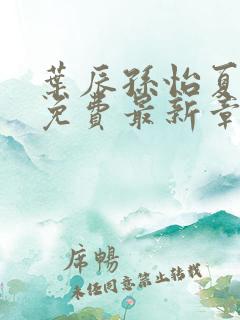 葉辰孫怡夏
免費最新章
席暢
未经同意禁止转载